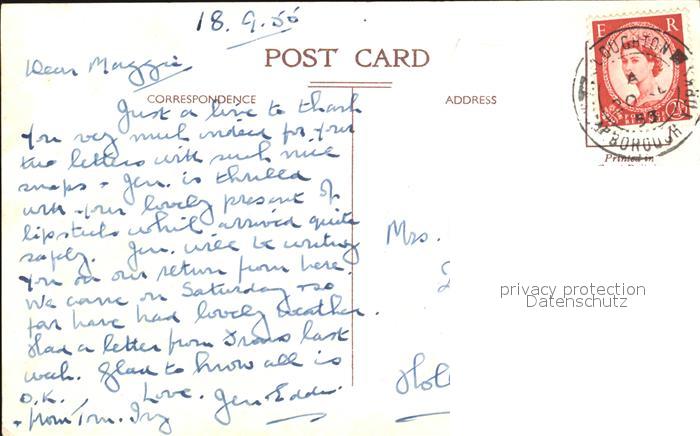 18.9.56
Dear Maggie
POST CARD
CORRESPONDENCE
ADDRESS
Just a line to thank
you very much indeed for your
two letters with such nice
snaps - Jen. is thrilled
with your lovely present of
lipsticks which arrived quite
safely. Jen. will be writing
you on our return from here.
We came on Saturday & so
far have had lovely weather.
Had a letter from last
week. Glad to know all is
O.K. Love. Jen Eddie.
- from Tom. Ivy
E R
LOUGHTON
A
BOROUGH
2½
Printed in
Mrs.
Holl
privacy protection
Datenschutz